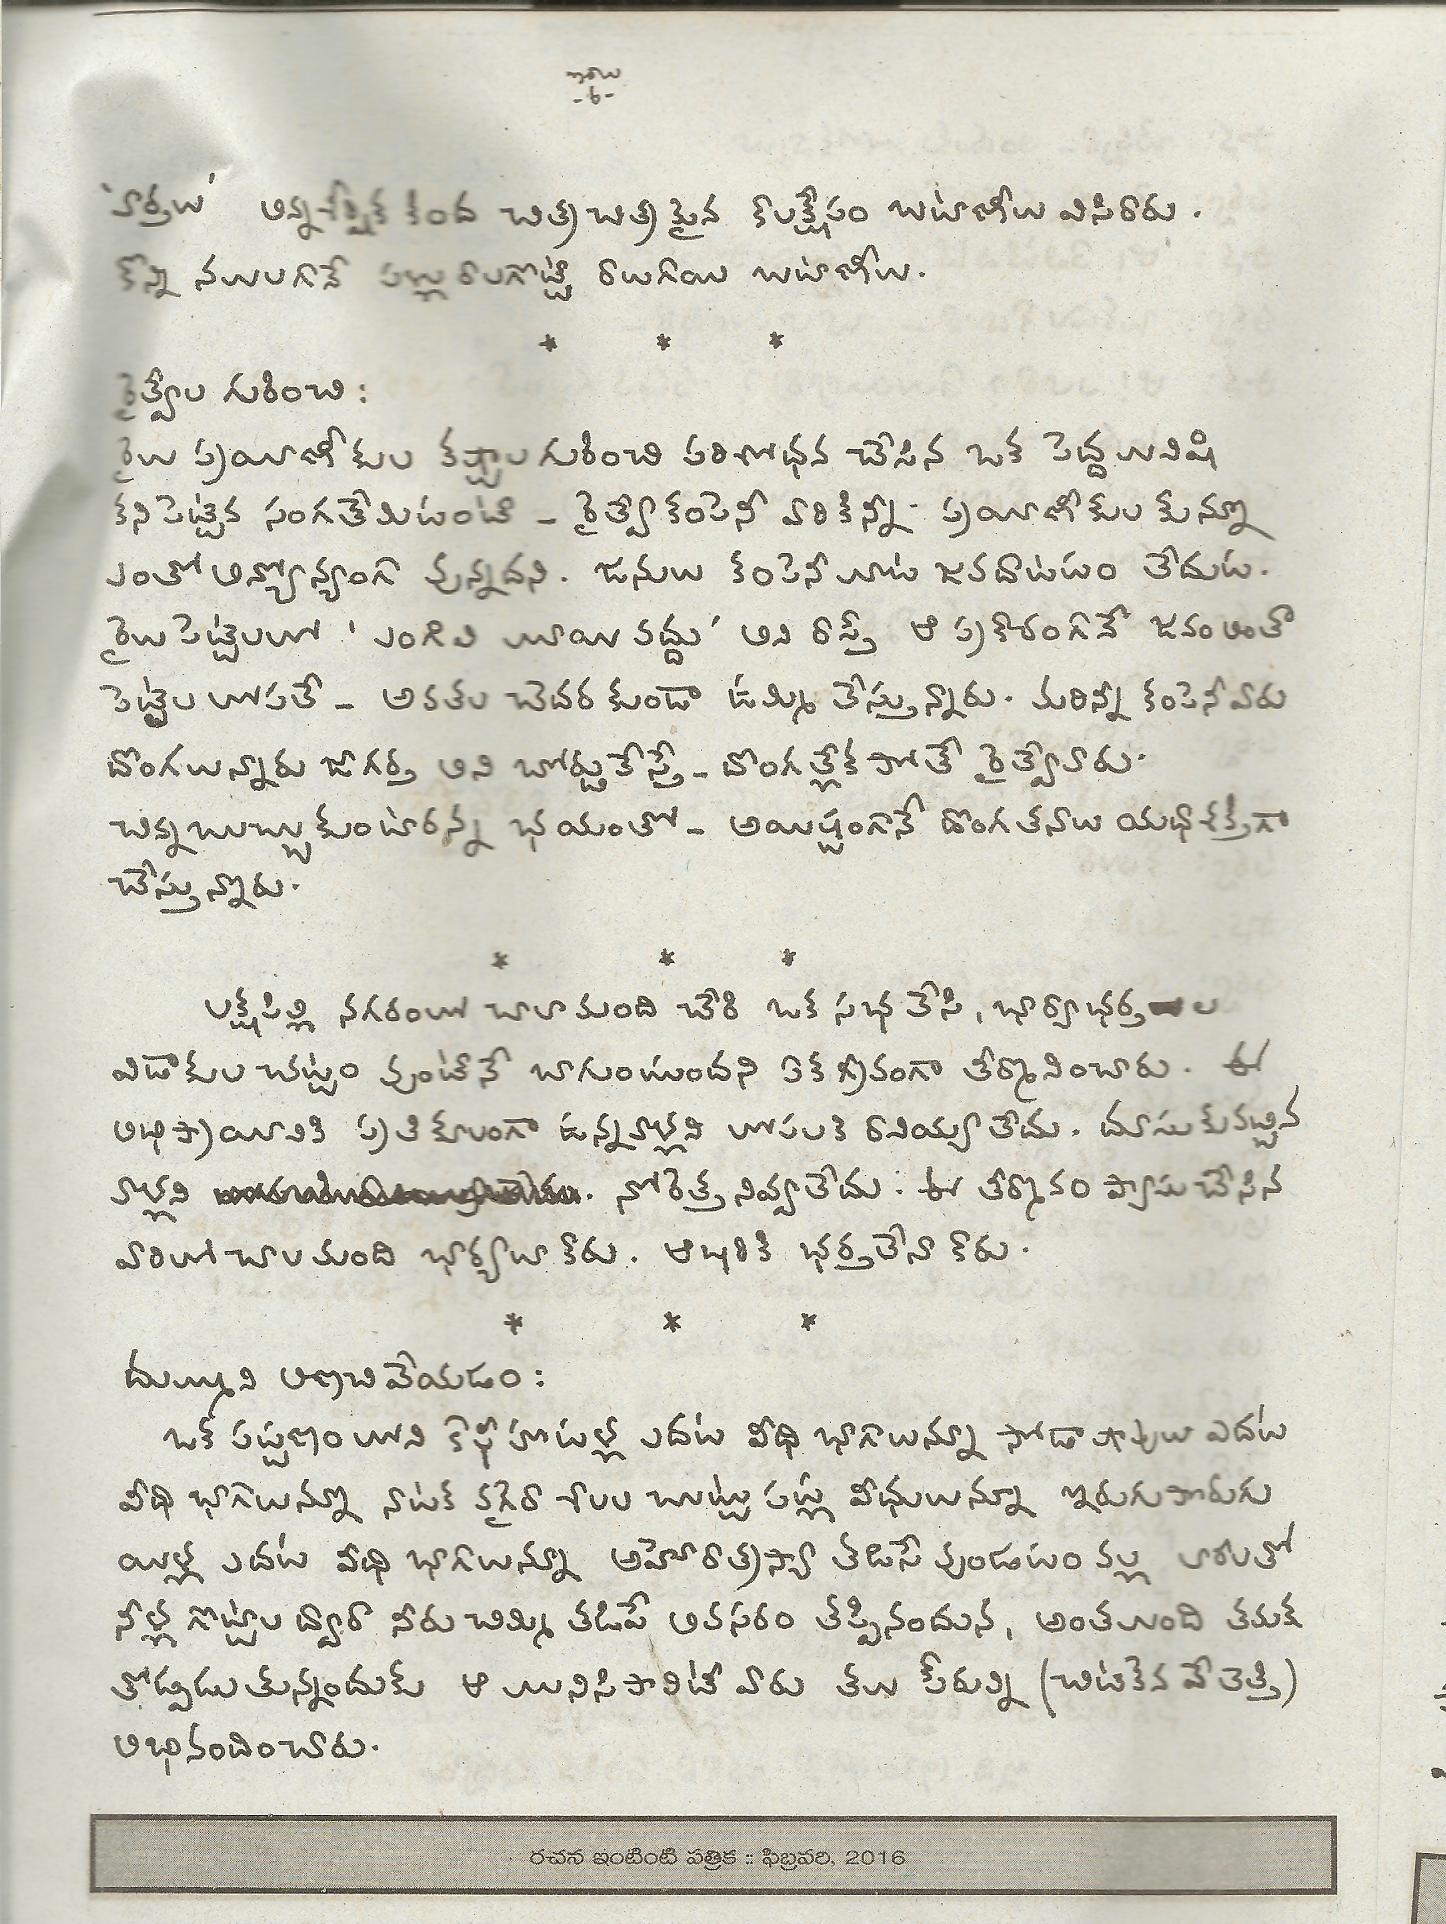 -6-
'వార్తలు' అన్న శీర్షిక కింద చిత్ర చిత్రమైన కాలక్షేపం బఠాణీలు విసిరారు.
కొన్ని నములగానే పళ్లు రాలగొట్టే రాలుగాయి బఠాణీలు.
* * *
రైల్వేల గురించి :
రైలు ప్రయాణీకుల కష్టాల గురించి పరిశోధన చేసిన ఒక పెద్దమనిషి
కనిపెట్టిన సంగతేమిటంటే - రైల్వే కంపెనీ వారికిన్నీ ప్రయాణీకులకున్నూ
ఎంతో అన్యోన్యంగా వున్నదని. జనులు కంపెనీ మాట జవదాటటం లేదుట.
రైలు పెట్టెలలో 'ఎంగిలి ఊయవద్దు' అని రాస్తే ఆ ప్రకారంగానే జనం అంతా
పెట్టెల లోపలే - అవతల చెదరకుండా ఉమ్మి వేస్తున్నారు. మరిన్నీ కంపెనీవారు
దొంగలున్నారు జాగర్త అని బోర్డు వేస్తే - దొంగల్లేకపోతే రైల్వేవారు
చిన్నబుచ్చుకుంటారన్న భయంతో - అయిష్టంగానే దొంగతనాలు యథాశక్తిగా
చేస్తున్నారు.
* * *
నగరంలో చాలామంది చేరి ఒక సభ వేసి, భార్యాభర్తల
విడాకుల చట్టం వుంటేనే బాగుంటుందని ఏకగ్రీవంగా తీర్మానించారు. ఈ
అభిప్రాయానికి ప్రతికూలంగా ఉన్నవాళ్లని లోపలికి రానియ్యలేదు. దూసుకువచ్చిన
వాళ్లని నోరెత్తనివ్వలేదు. ఈ తీర్మానం ప్యాసు చేసిన
వారిలో చాలమంది భార్యలు కారు. ఆఖరికి భర్తలేనా కారు.
* * *
దుమ్ముని అణచివేయడం :
ఒక పట్టణంలోని కాఫీ హోటళ్ల ఎదుట వీథి భాగాలనున్నూ సోడా షాపుల ఎదుట
వీథి భాగాలనున్నూ నాటక వగైరా శాలల చుట్టు పట్ల వీథులనున్నూ ఇరుగుపొరుగు
యిళ్ల ఎదుట వీథి భాగాలనున్నూ అహోరాత్రాలూ తడిసే వుండటం వల్ల వారు
నీళ్ల గొట్టాల ద్వారా నీరు చిమ్మి తడిపే అవసరం తప్పినందున, అంతమంది తమకు
తోడ్పడుతున్నందుకు ఆ మునిసిపాలిటీ వారు తమ పేరున్ని (చిటికెన వేలెత్తి)
అభినందించారు.
రచన ఇంటింటి పత్రిక :: ఫిబ్రవరి, 2016